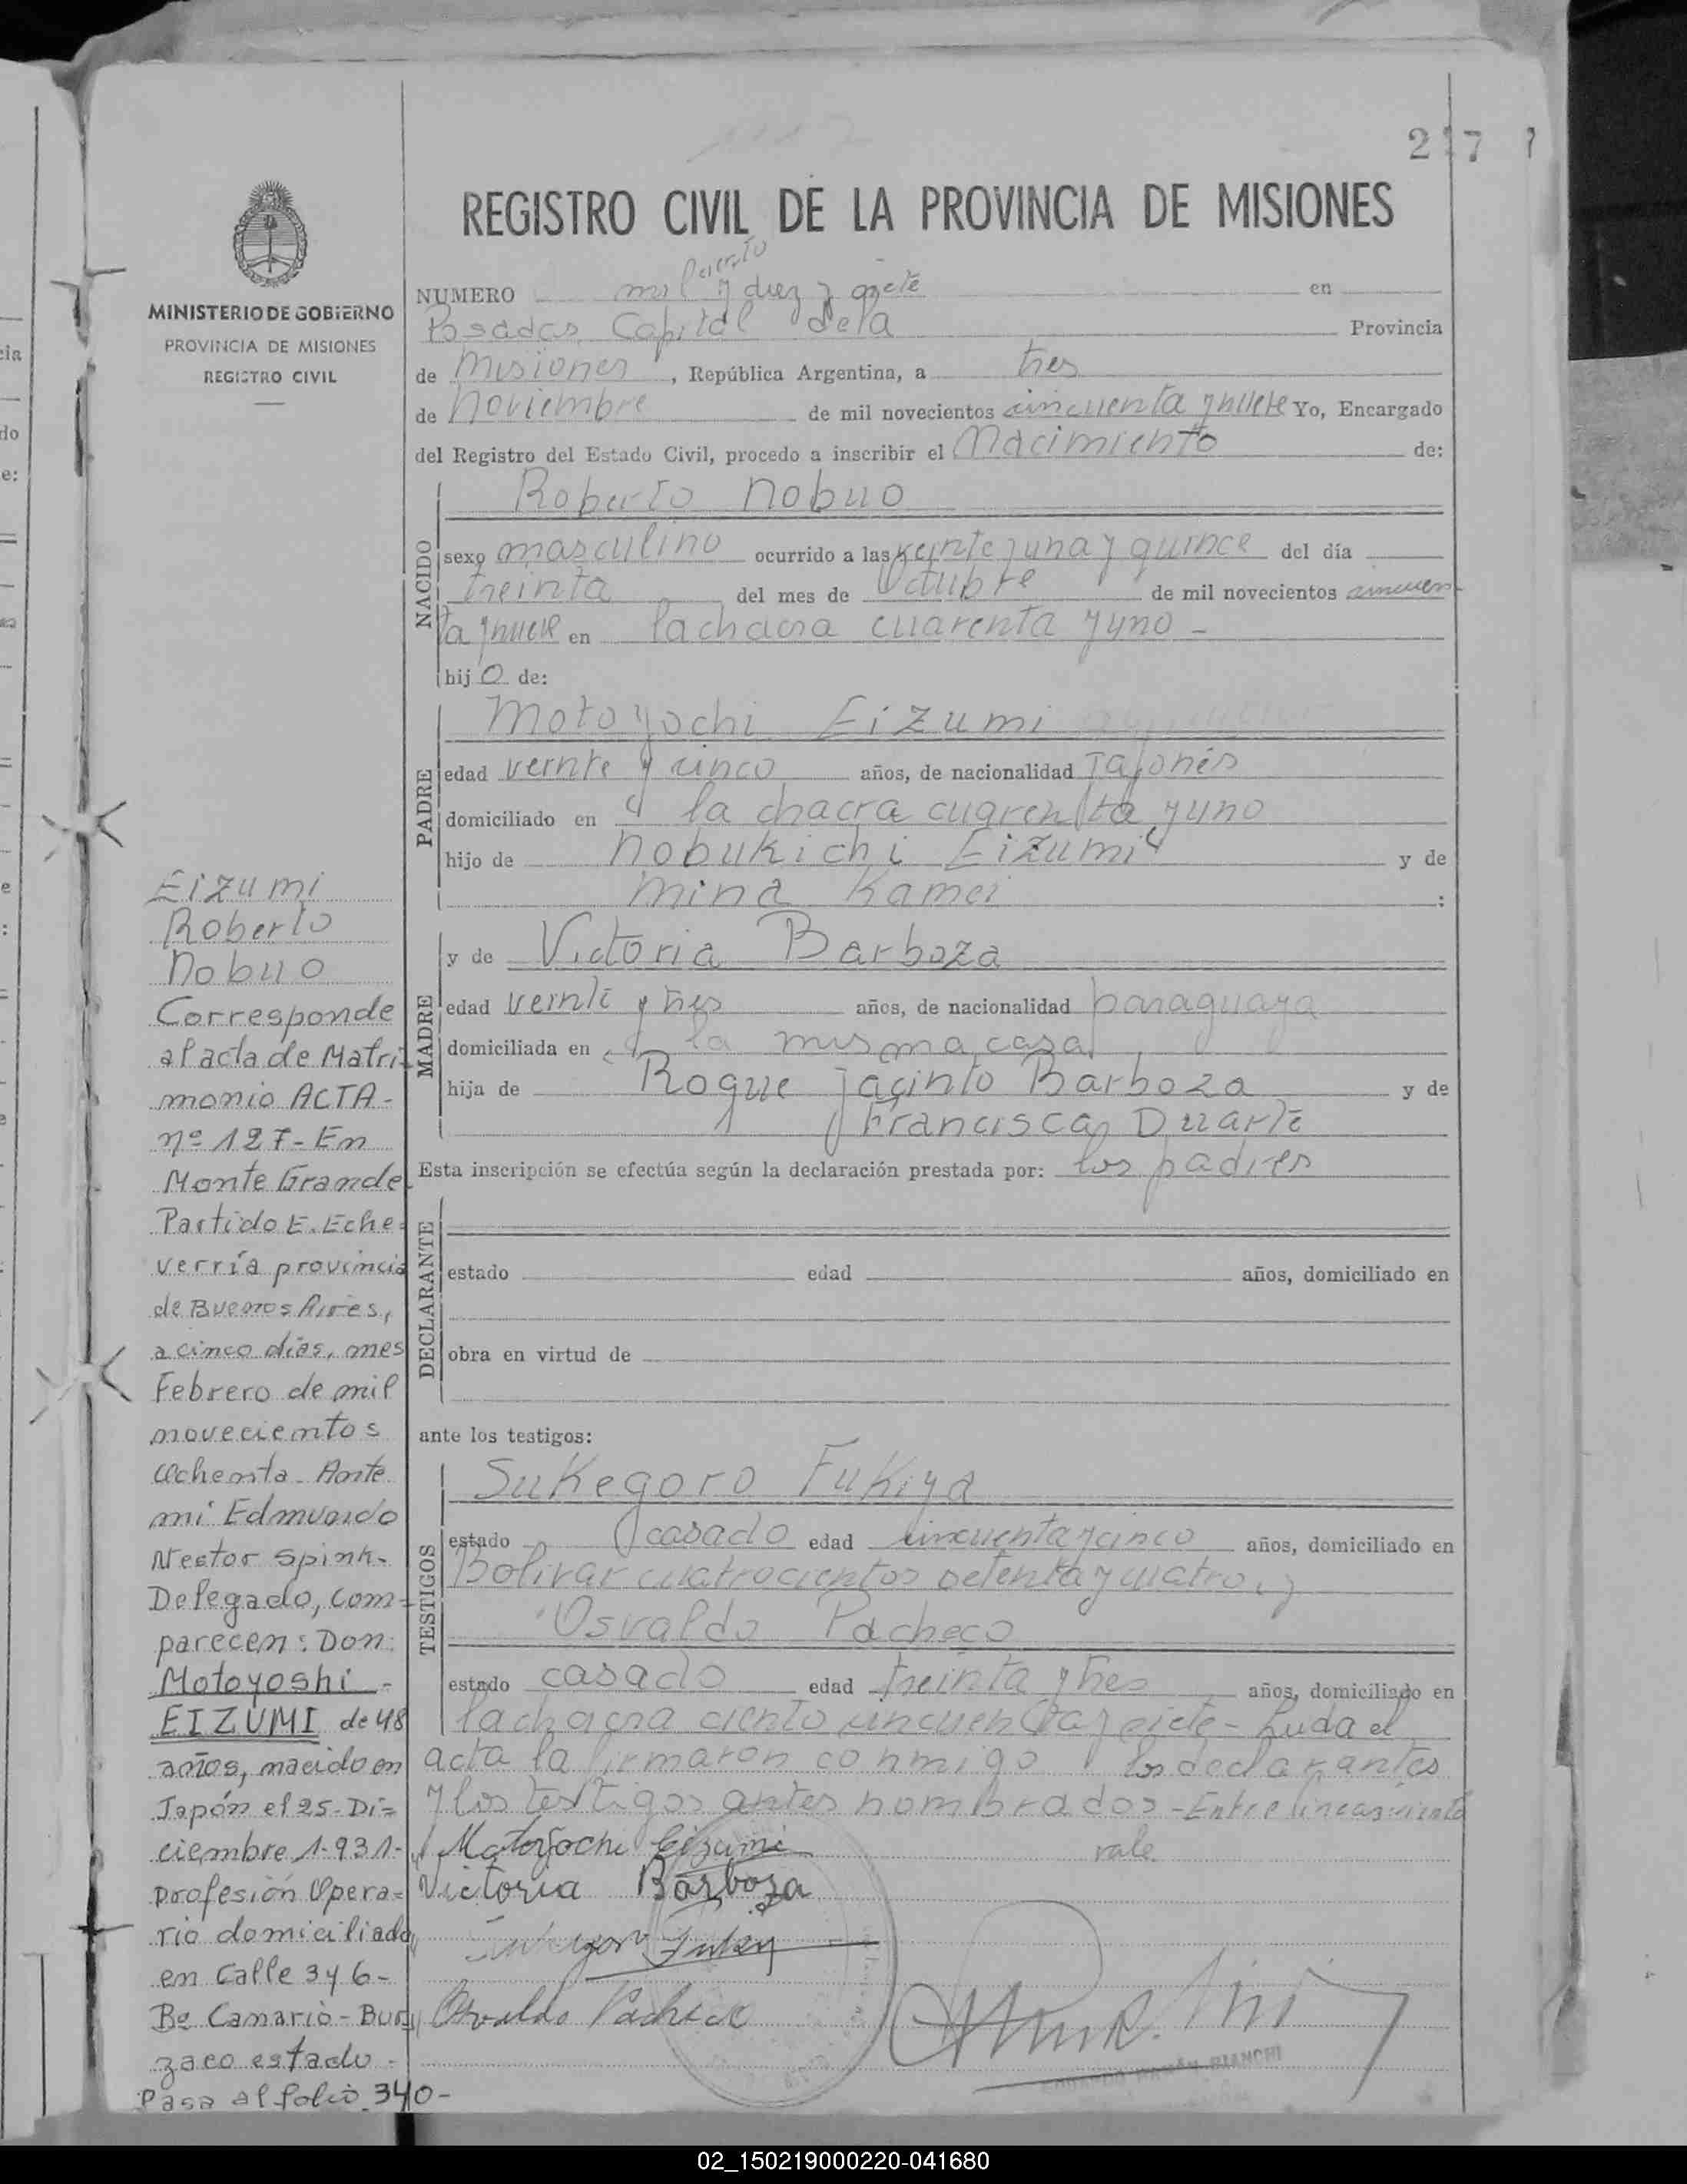 217
REGISTRO CIVIL DE LA PROVINCIA DE MISIONES
MINISTERIO DE GOBIERNO
PROVINCIA DE MISIONES
REGISTRO CIVIL
ciento
NUMERO mil y diez y siete en
Posadas Capital dela Provincia
de Misiones, República Argentina, a tres
de Noviembre de mil novecientos cincuenta ynueve Yo, Encargado
del Registro del Estado Civil, procedo a inscribir el Nacimiento de:
NACIDO
Roberto Nobuo
sexo masculino ocurrido a las veinte yuna y quince del día
treinta del mes de Octubre de mil novecientos cincuen
ta ynueve en lachacra cuarenta yuno -
hijo de:
PADRE
Motoyochi Eizumi
edad veinte y cinco años, de nacionalidad Japonés
domiciliado en la chacra cuarenta yuno
hijo de Nobukichi Eizumi y de
Mina Kamei :
MADRE
y de Victoria Barboza
edad veinte y tres años, de nacionalidad paraguaya
domiciliada en la misma casa
hija de Roque Jacinto Barboza y de
Francisca Duarte
Esta inscripción se efectúa según la declaración prestada por: los padres
DECLARANTE
estado edad años, domiciliado en
obra en virtud de
ante los testigos:
TESTIGOS
Sukegoro Fukiya
estado casado edad cincuentaycinco años, domiciliado en
Bolivar cuatrocientos setenta y cuatro, y
Osvaldo Pacheco
estado casado edad treinta y tres años, domiciliado en
lachacra ciento cincuentay siete - Luda el
acta la firmaron conmigo los declarantes
y los testigos antes nombrados - Entre lineas: ciento
vale
Motoyochi Eizumi
Victoria Barboza
Osvaldo Pacheco
BIANCHI
Eizumi
Roberto
Nobuo
Corresponde
al acta de Matri
monio ACTA -
nº 127 - En
Monte Grande
Partido E. Eche
verría provincia
de Buenos Aires,
a cinco días, mes
Febrero de mil
novecientos
ochenta - Ante
mi Edmundo
Nestor Spink -
Delegado, com-
parecen: Don:
Motoyoshi -
EIZUMI de 48
años, nacido en
Japón el 25 - Di=
ciembre 1.931 -
profesión Opera=
rio domiciliado
en Calle 346 -
Bº Canario - Bur
zaco estado -
Pasa al folio 340 -
02_150219000220-041680